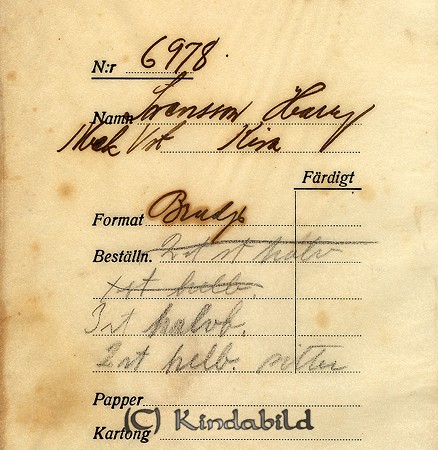 N:r 6978.
Namn Svensson Harry
Mek Vst Kisa
Färdigt
Format
Beställn. 2 st st halv
1 st helb.
3 st halvb.
2 st helb. sitter
Papper
Kartong
(C) Kindabild